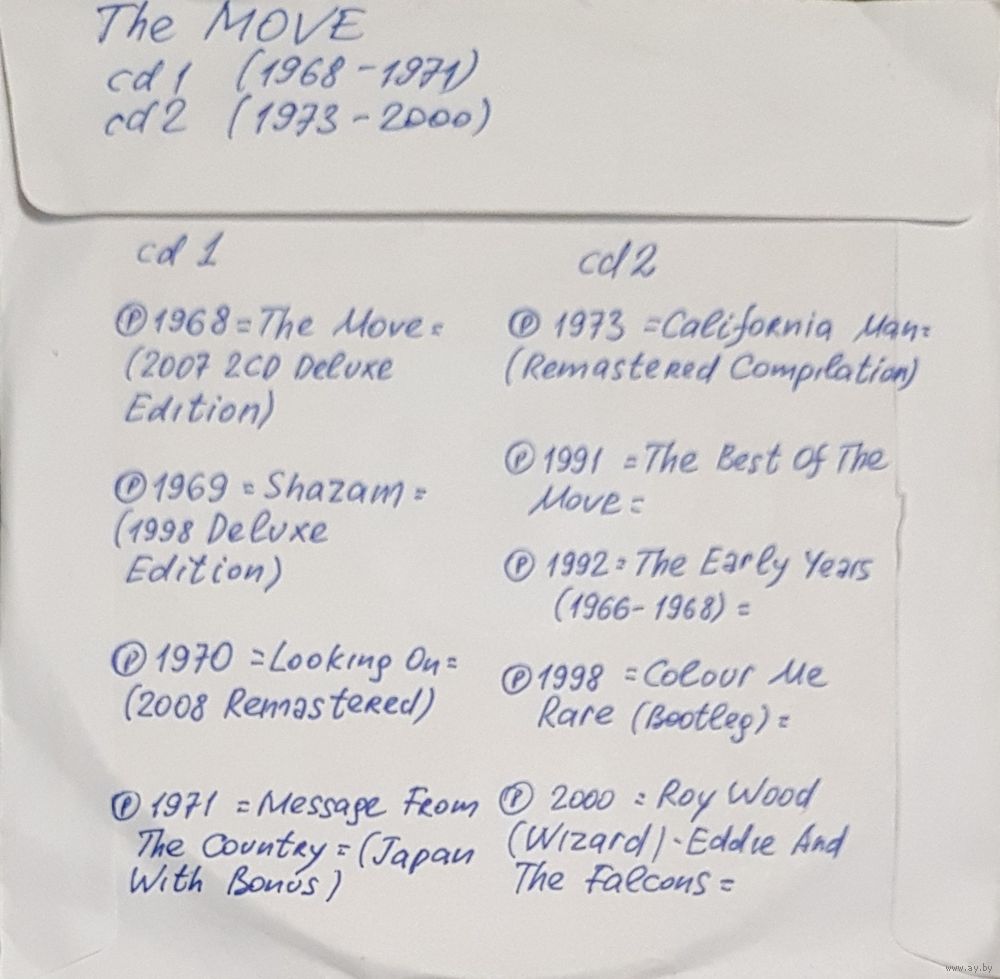 The MOVE
cd 1 (1968-1971)
cd 2 (1973-2000)
cd 1
Ⓟ 1968 = The Move =
(2007 2CD Deluxe
Edition)
Ⓟ 1969 = Shazam =
(1998 Deluxe
Edition)
Ⓟ 1970 = Looking On =
(2008 Remastered)
Ⓟ 1971 = Message From
The Country = (Japan
With Bonus)
cd 2
Ⓟ 1973 = California Man =
(Remastered Compilation)
Ⓟ 1991 = The Best Of The
Move =
Ⓟ 1992 = The Early Years
(1966-1968) =
Ⓟ 1998 = Colour Me
Rare (Bootleg) =
Ⓟ 2000 = Roy Wood
(Wizard) - Eddie And
The Falcons =
www.ay.by